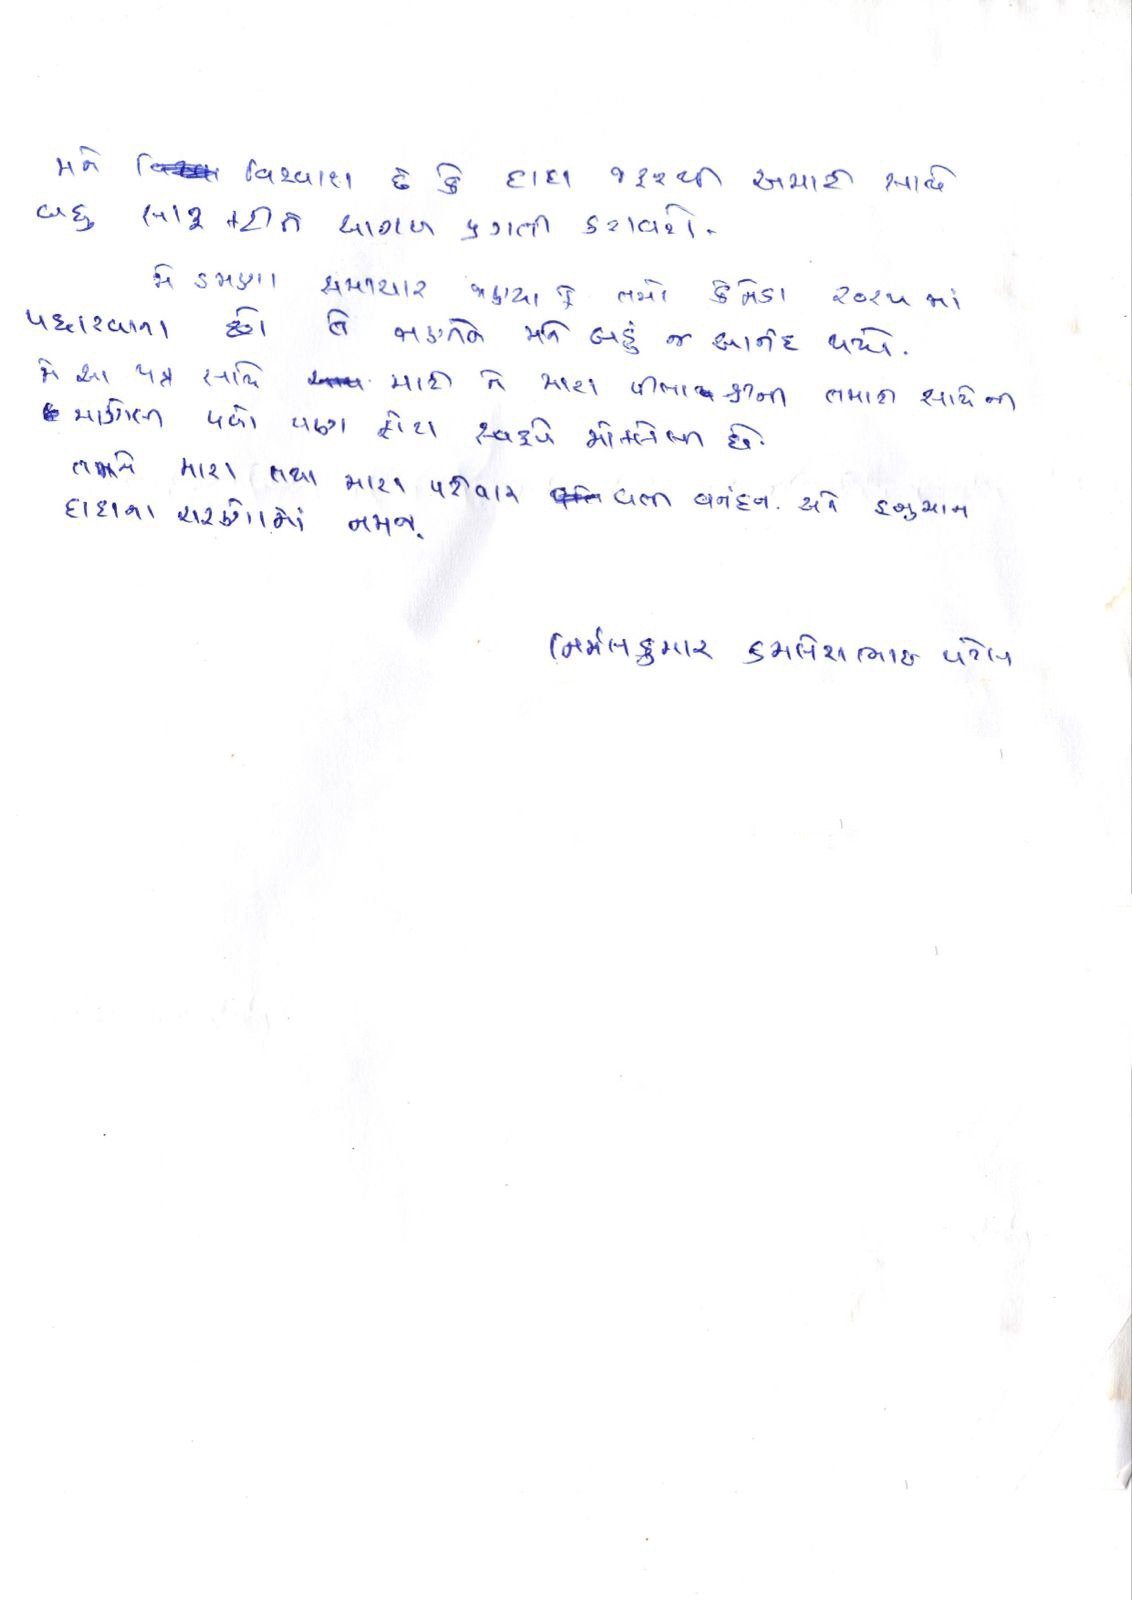 મને વિશ્વાસ છે કે દાદા જરૂરથી અમારી સાથે
બહુ સારૂ કરીને આગળ પ્રગતી કરાવશે.
મે હમણા સમાચાર જાણ્યા કે તમો કેનેડા ૨૦૨૫ માં
પધારવાના છો તે જાણીને મને બહું જ આનંદ થયો.
મે આ પત્ર સાથે મારી ને મારા પીતા તમારી સાથેના
પળો પણ ફોટા સ્વરૂપે મોકલેલા છે.
તમને મારા તથા મારા પરીવાર વતી વંદન. અને હનુમાન
દાદાના ચરણોમાં નમન.
નિર્મલકુમાર કમલેશભાઇ પટેલ